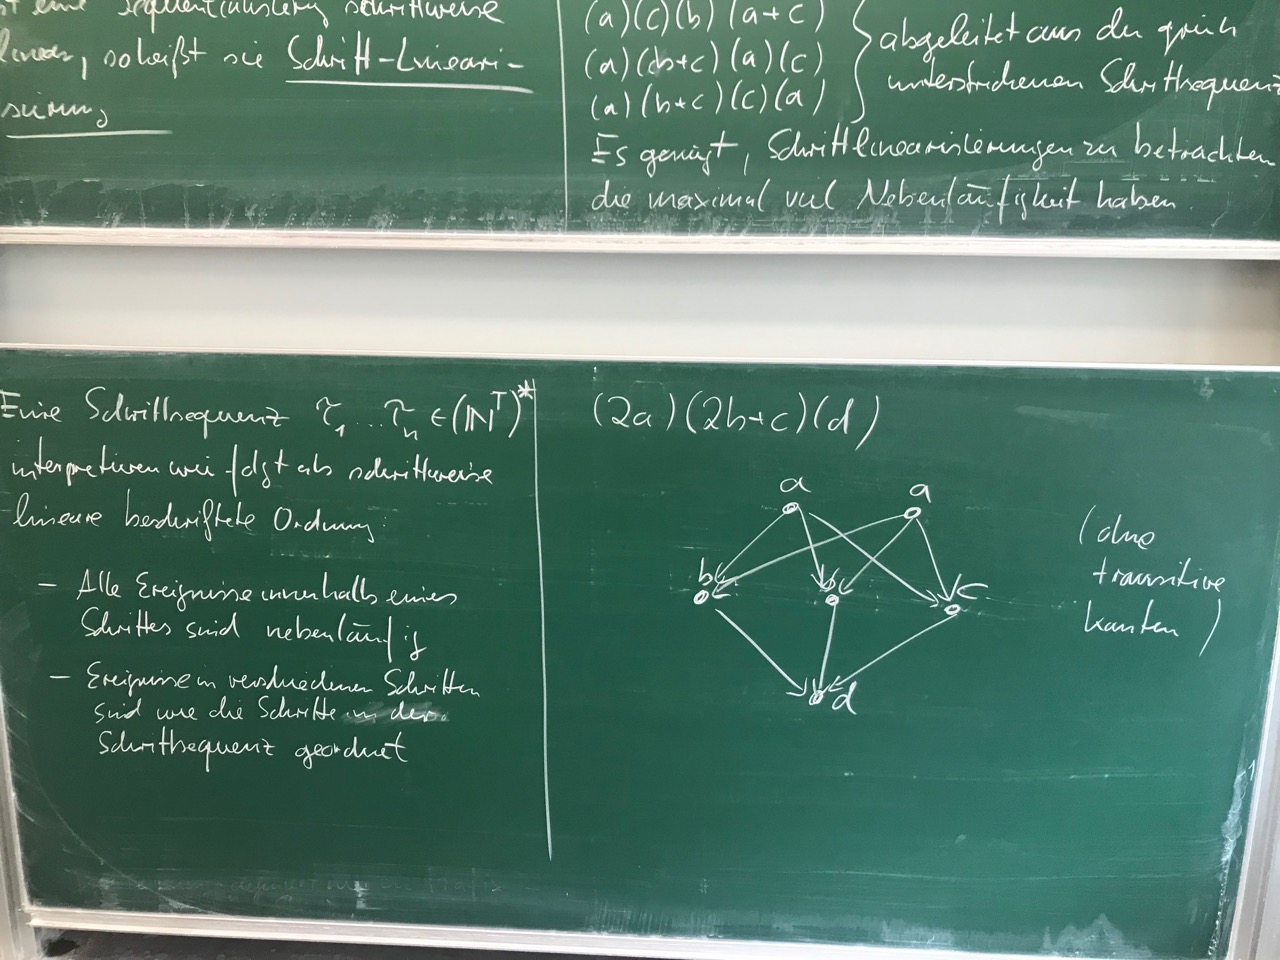 eine Sequentialisierung schrittweise
linear, so heißt sie Schritt-Lineari-
sierung
(a)(c)(b)(a+c)
(a)(b+c)(a)(c)
(a)(b+c)(c)(a)
abgeleitet aus der grün
unterstrichenen Schrittsequenz
Es genügt, Schrittlinearisierungen zu betrachten
die maximal viel Nebenläufigkeit haben.
Eine Schrittsequenz τ₁...τₙ ∈ (ℕᵀ)*
interpretieren wir folgt als schrittweise
lineare beschriftete Ordnung:
- Alle Ereignisse innerhalb eines
Schrittes sind nebenläufig
- Ereignisse in verschiedenen Schritten
sind wie die Schritte in der
Schrittsequenz geordnet
(2a)(2b+c)(d)
a a
b b c
d
(ohne
transitive
kanten)